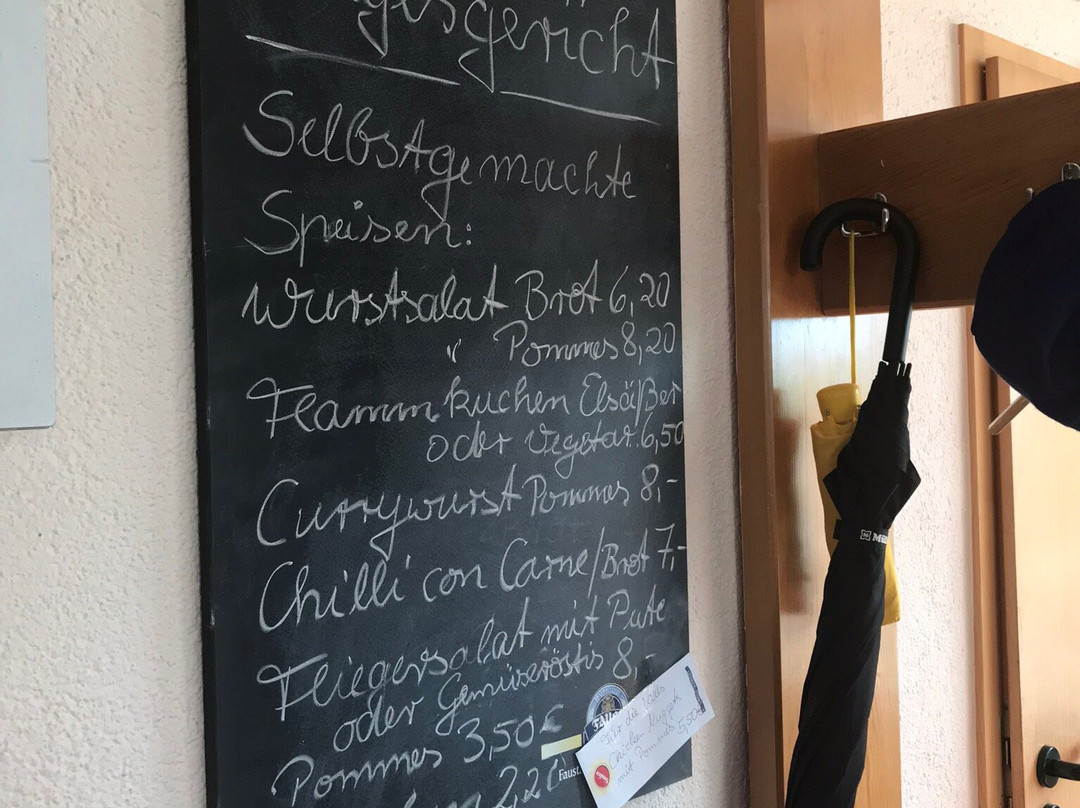 gericht
Selbstgemachte
Speisen:
Wurstsalat Brot 6,20
" Pommes 8,20
Flammkuchen Elsäßer
oder Vegetar. 6,50
Currywurst Pommes 8,-
Chilli con Carne/Brot 7,-
Fliegersalat mit Pute
oder Gemüseröstis 8,-
Pommes 3,50€
2,20
Faust
Für die Kids
Chicken Nuggets
mit Pommes 5,50€